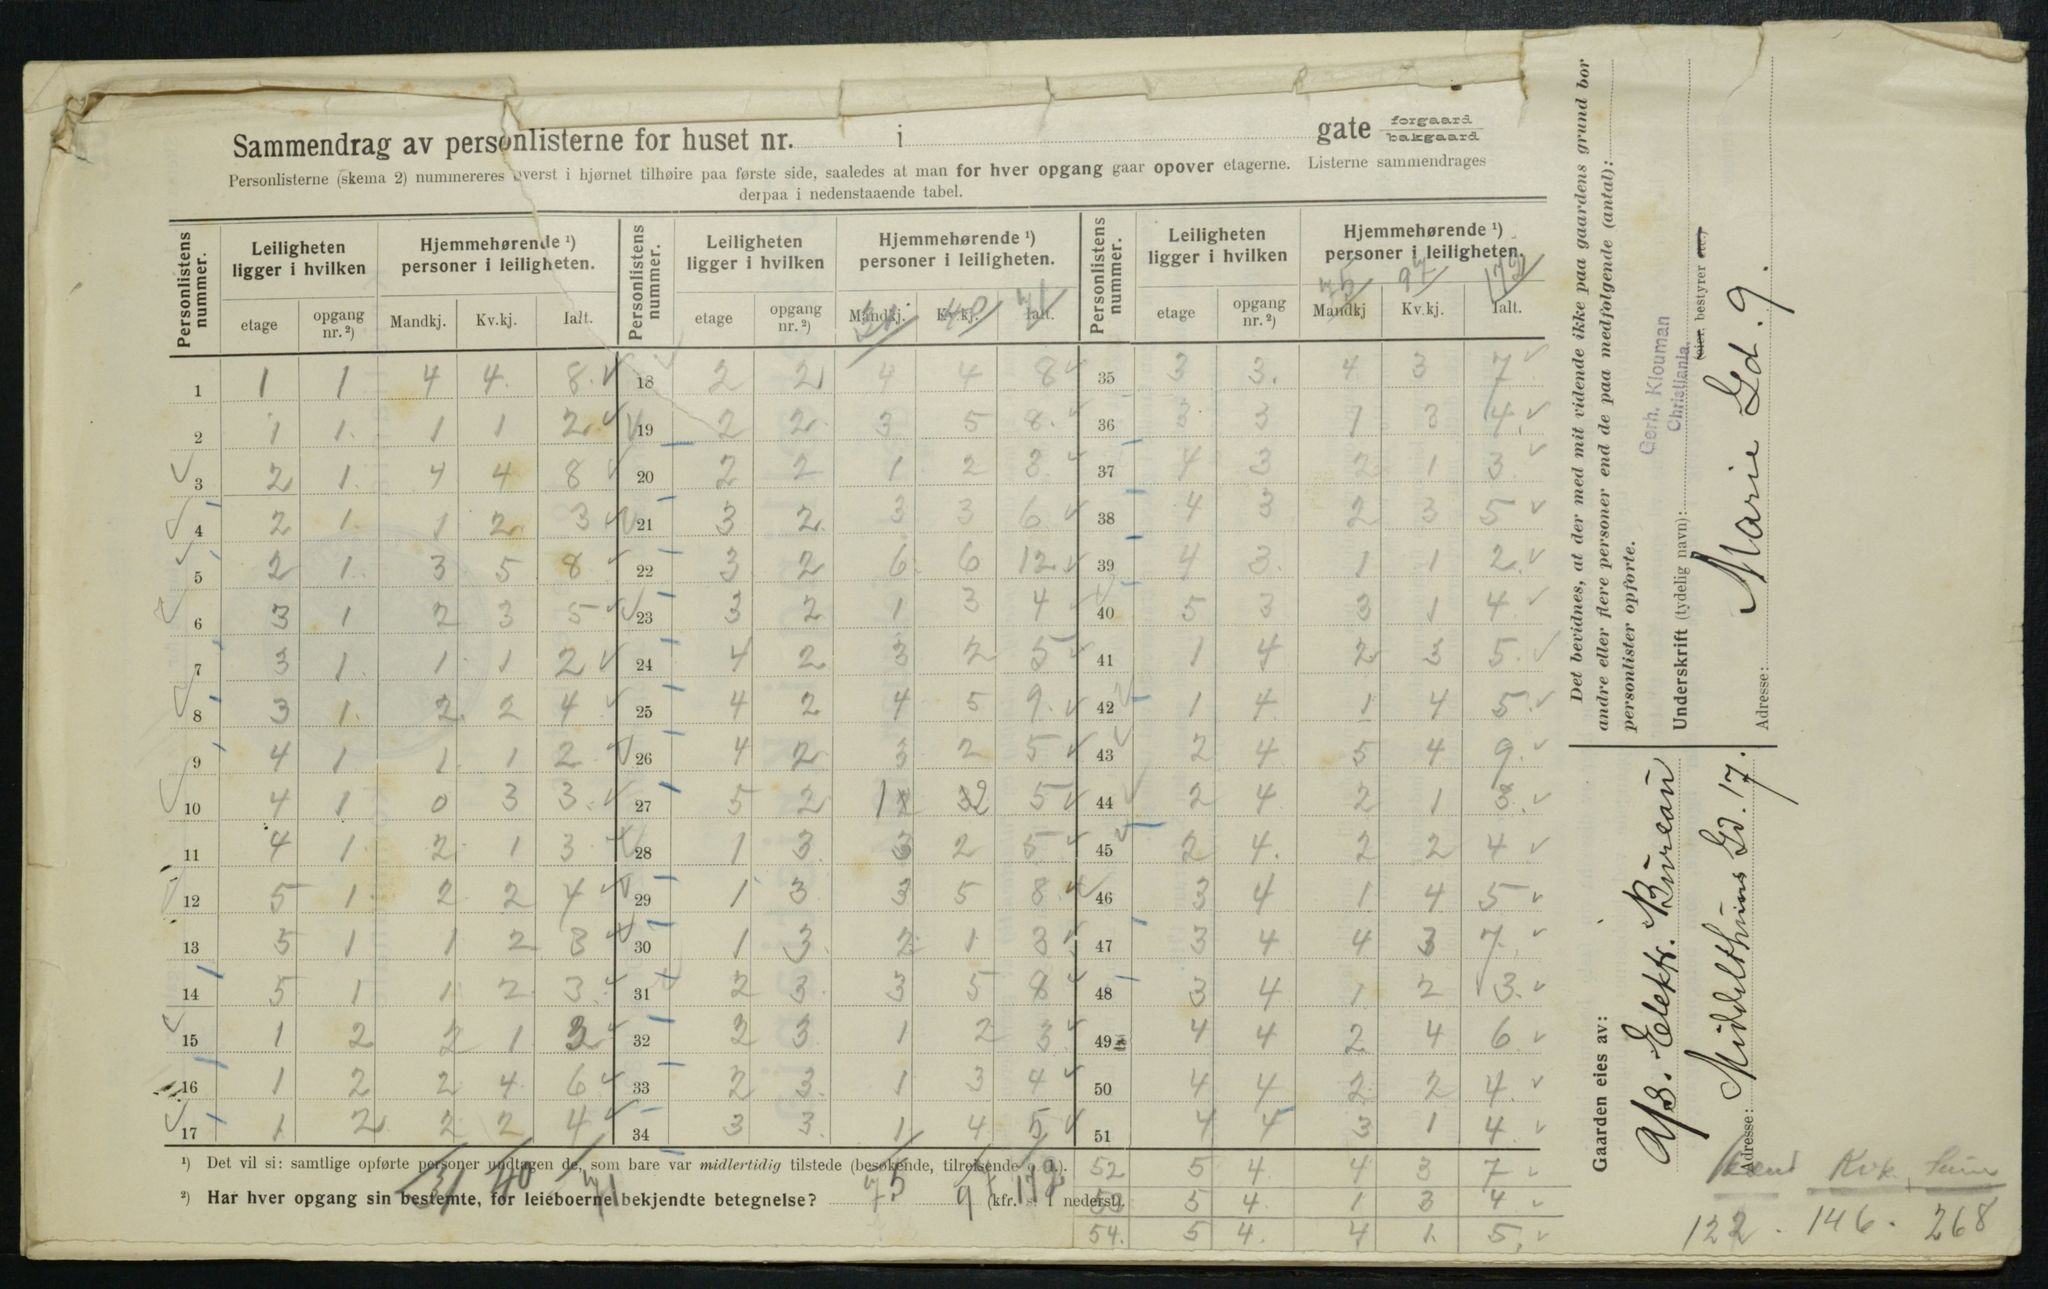 Sammendrag av personlisterne for huset nr. i gate forgaard bakgaard
Personlisterne (skema 2) nummereres øverst i hjørnet tilhøire paa første side, saaledes at man for hver opgang gaar opover etagerne. Listerne sammendrages
derpaa i nedenstaaende tabel.
Personlistens nummer. Leiligheten ligger i hvilken Hjemmehørende ¹) personer i leiligheten. Personlistens nummer. Leiligheten ligger i hvilken Hjemmehørende ¹) personer i leiligheten. Personlistens nummer. Leiligheten ligger i hvilken Hjemmehørende ¹) personer i leiligheten.
31 40 71 75 97 172
etage opgang nr. ²) Mandkj. Kv.kj. Ialt. etage opgang nr. ²) Mandkj. Kv.kj. Ialt. etage opgang nr. ²) Mandkj Kv.kj. Ialt.
1 1 1 4 4 8 18 2 2 4 4 8 35 3 3 4 3 7
2 1 1 1 1 2 19 2 2 3 5 8 36 3 3 1 3 4
3 2 1 4 4 8 20 2 2 1 2 3 37 4 3 2 1 3
4 2 1 1 2 3 21 3 2 3 3 6 38 4 3 2 3 5
5 2 1 3 5 8 22 3 2 6 6 12 39 4 3 1 1 2
6 3 1 2 3 5 23 3 2 1 3 4 40 5 3 3 1 4
7 3 1 1 1 2 24 4 2 3 2 5 41 1 4 2 3 5
8 3 1 2 2 4 25 4 2 4 5 9 42 1 4 1 4 5
9 4 1 1 1 2 26 4 2 3 2 5 43 2 4 5 4 9
10 4 1 0 3 3 27 5 2 5 44 2 4 2 1 3
11 4 1 2 1 3 28 1 3 3 2 5 45 2 4 2 2 4
12 5 1 2 2 4 29 1 3 3 5 8 46 3 4 1 4 5
13 5 1 1 2 3 30 1 3 2 1 3 47 3 4 4 3 7
14 5 1 1 2 3 31 2 3 3 5 8 48 3 4 1 2 3
15 1 2 2 1 3 32 2 3 1 2 3 49 4 4 2 4 6
16 1 2 2 4 6 33 2 3 1 3 4 50 4 4 2 2 4
17 1 2 2 2 4 34 3 3 1 4 5 51 4 4 3 1 4
52 5 4 4 3 7
53 5 4 1 3 4
54. 5 4. 4 1 5
¹) Det vil si: samtlige opførte personer undtagen de, som bare var midlertidig tilstede (besøkende, tilreisende o. a.).
31 40 71 75 97 172
²) Har hver opgang sin bestemte, for leieboerne bekjendte betegnelse? (kfr. s. 1 nederst).
Det bevidnes, at der med mit vidende ikke paa gaardens grund bor
andre eller flere personer end de paa medfølgende (antal):
personlister opførte.
Gerh. Klouman
Christiania.
Underskrift (tydelig navn): (eier, bestyrer etc.)
Adresse: Marie Gd. 9.
Gaarden eies av:
A/S. Elektr. Bureau
Adresse: Middelthuns Gd. 17.
Kvk. Sum
122. 146. 268